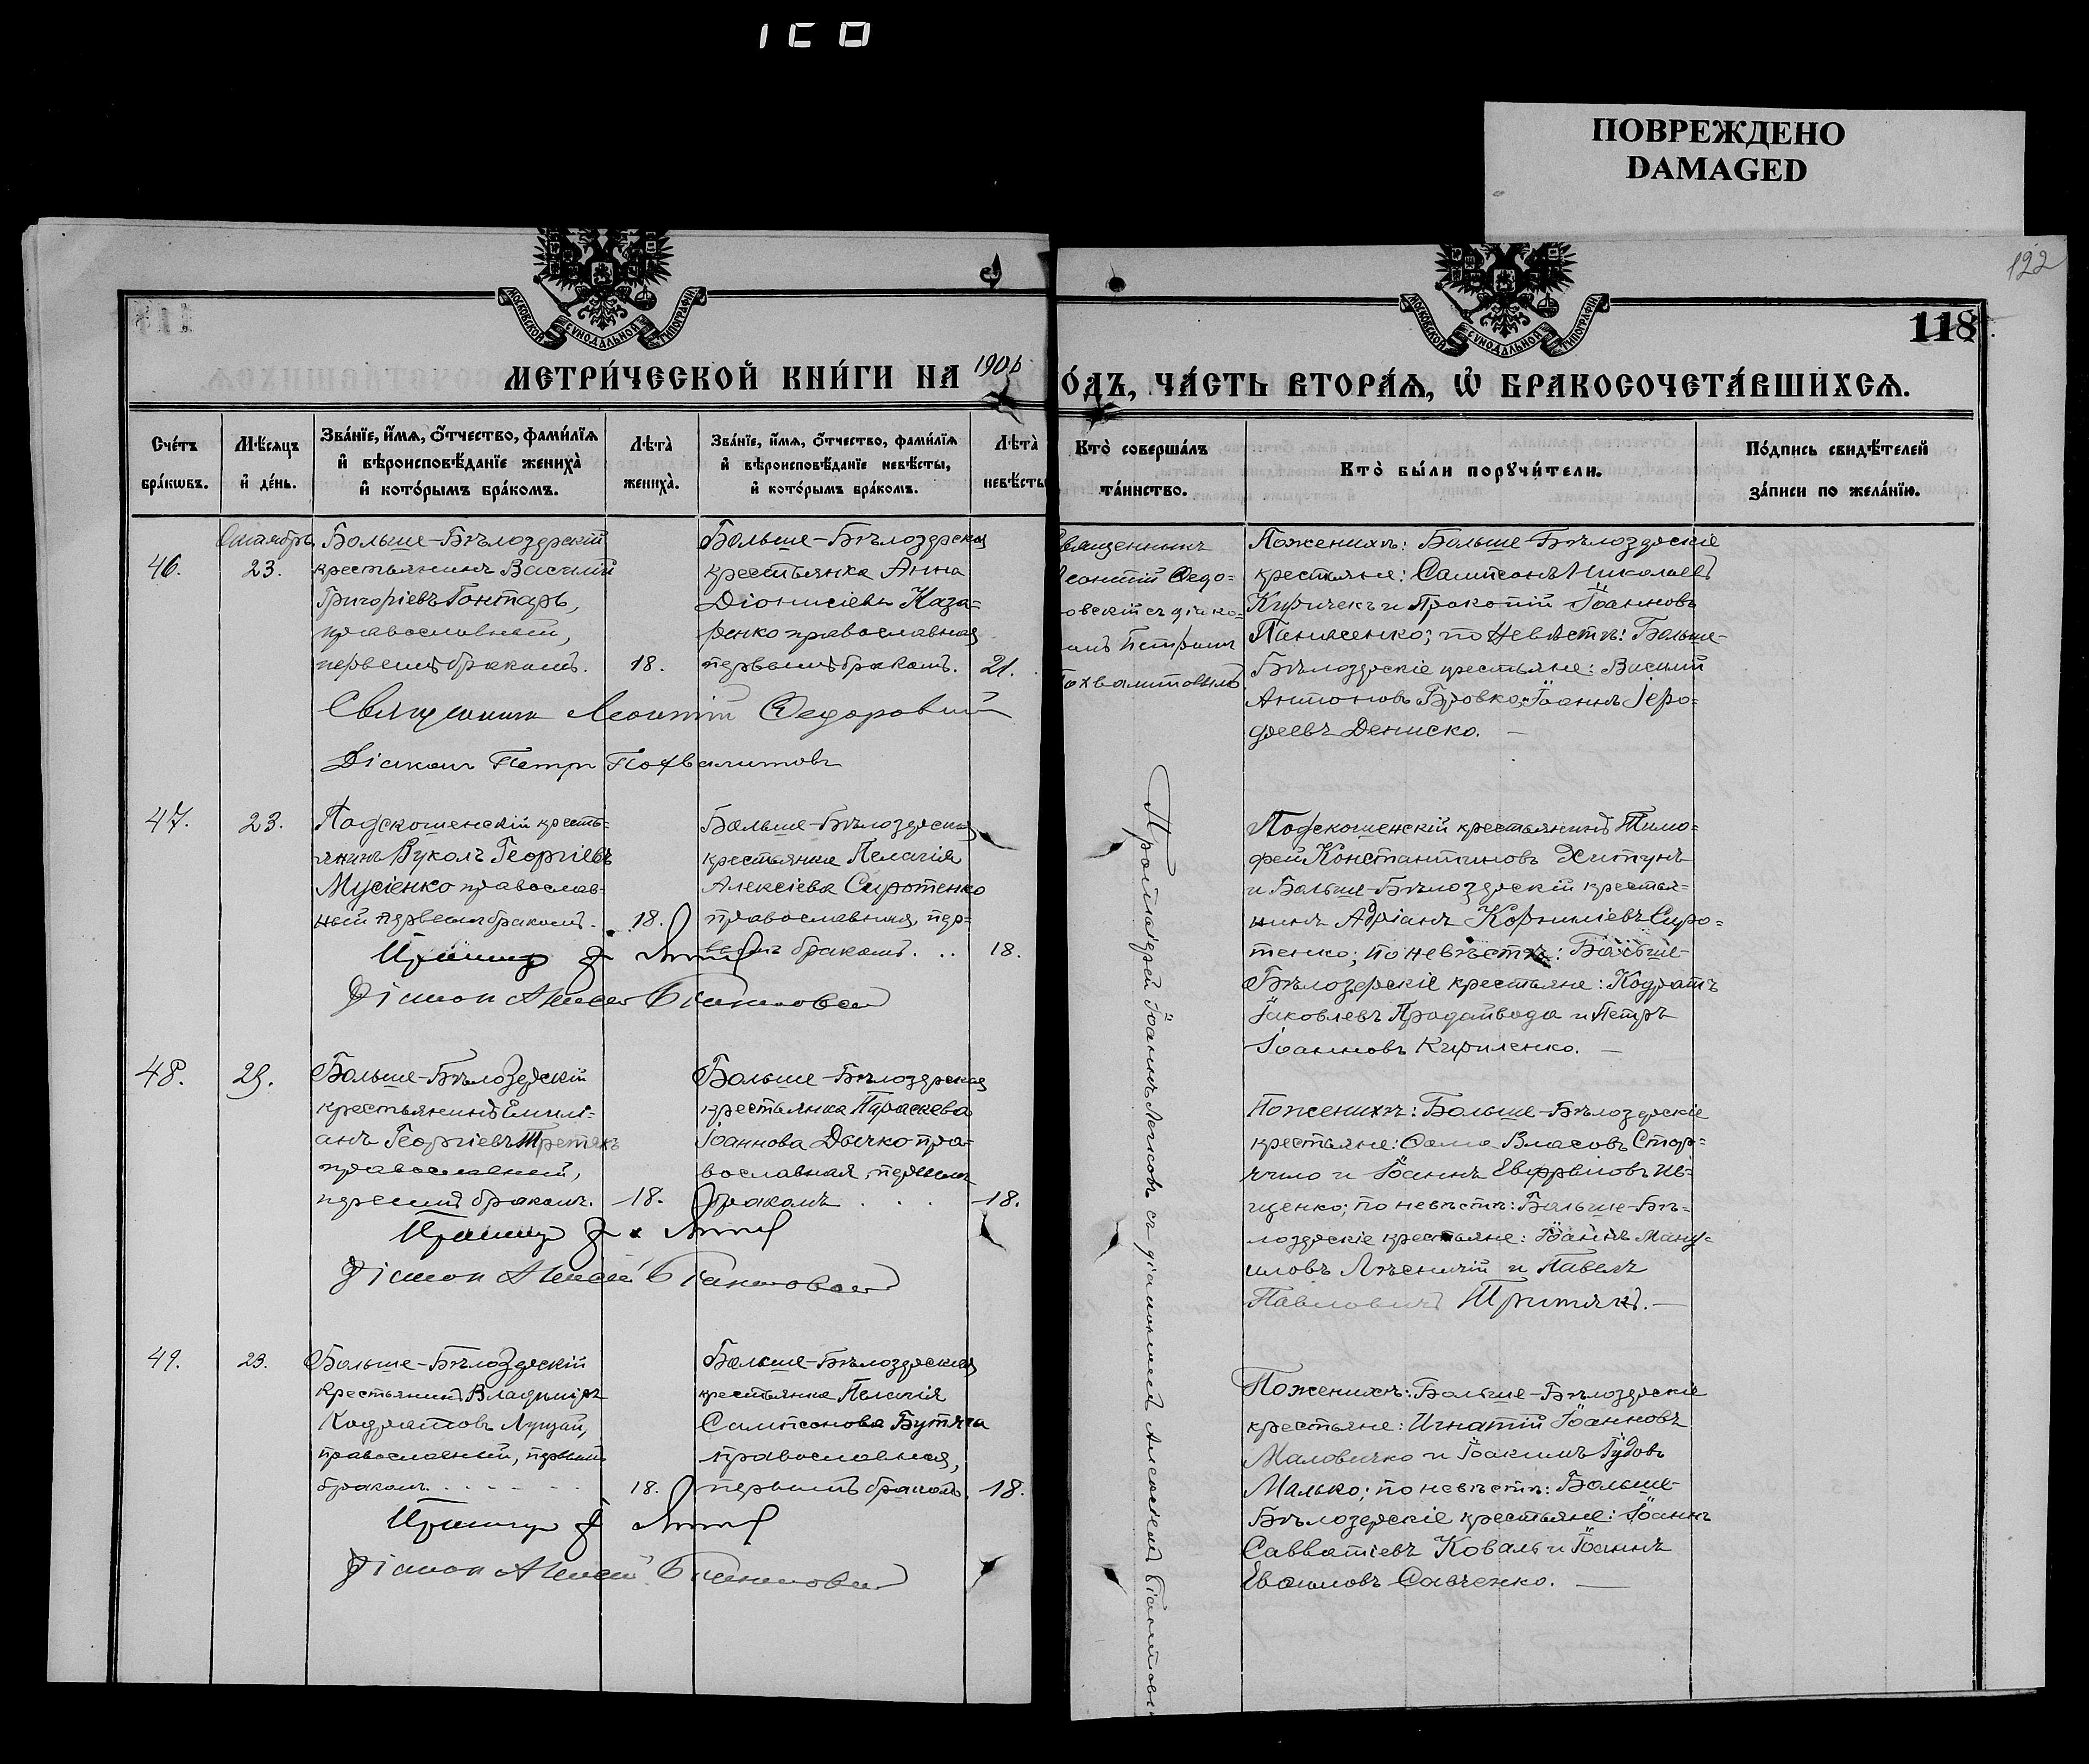 ПОВРЕЖДЕНО
DAMAGED
122
118
МОСКОВСКОЙ СѴНОДАЛЬНОЙ ТИПОГРАФІИ
МОСКОВСКОЙ СѴНОДАЛЬНОЙ ТИПОГРАФІИ
МЕТРИ́ЧЕСКОЙ КНИ́ГИ НА 1906
О́ДЪ, ЧА́СТЬ ВТОРА́Ѧ, Ѡ҆ БРАКОСОЧЕТА́ВШИХСѦ.
Сче́тъ бра́кѡвъ.
Мѣ́сяцъ и҆ де́нь.
Зва́нїе, и҆́мѧ, ѻ҆́тчество, фами́лїѧ и҆ вѣроисповѣ́данїе жениха̀ и҆ кото́рымъ бра́комъ.
Лѣта̀ жениха̀.
Зва́нїе, и҆́мѧ, ѻ҆́тчество, фами́лїѧ и҆ вѣроисповѣ́данїе невѣ́сты, и҆ кото́рымъ бра́комъ.
Лѣта̀ невѣ́сты
Кто̀ соверша́лъ та́инство.
Кто̀ бы́ли порꙋчи́тели.
По́дпись свидѣ́телей за́писи по жела́нїю.
46.
Октябрь
23.
Больше-Бѣлозерскій
крестьянинъ Василій
Григоріевъ Гонтарь,
православный,
первымъ бракомъ.
18.
Больше-Бѣлозерская
крестьянка Анна
Діонисіева Наза-
ренко православная
первымъ бракомъ.
21.
Священникъ Леонтій Федоровскій
Діаконъ Петръ Похвалитовъ
вященникъ
еонтій Федо-
овскій съ діако-
омъ Петромъ
охвалитовымъ
По женихѣ: Больше-Бѣлозерскіе
крестьяне: Сампсонъ Николаевъ
Киричекъ и Прокопій Іоанновъ
Панасенко; по невѣстѣ: Больше-
Бѣлозерскіе крестьяне: Василій
Антоновъ Бровко, Іоаннъ Іеро-
феевъ Дениско.
47.
23.
Подскошенскій кресть-
янинъ Вуколъ Георгіевъ
Мусіенко православ-
ный первымъ бракомъ.
18.
Больше-Бѣлозерская
крестьянка Пелагія
Алексіева Сиротенко
православная, пер-
вымъ бракомъ.
18.
Подскошенскій крестьянинъ Тимо-
фей Константиновъ Хитунъ
и Больше-Бѣлозерскій крестья-
нинъ Адріанъ Корниліевъ Сиро-
тенко; по невѣстѣ: Больше-
Бѣлозерскіе крестьяне: Кодратъ
Іаковлевъ Продайвода и Петръ
Іоанновъ Кириленко.
48.
23.
Больше-Бѣлозерскій
крестьянинъ Емилі-
анъ Георгіевъ Третякъ
православный,
первымъ бракомъ.
18.
Больше-Бѣлозерская
крестьянка Параскева
Іоаннова Дычко пра-
вославная, первымъ
бракомъ
18.
По женихѣ: Больше-Бѣлозерскіе
крестьяне: Фома Власовъ Стор-
чило и Іоаннъ Евфремовъ Ив-
щенко; по невѣстѣ: Больше-Бѣ-
лозерскіе крестьяне: Іоаннъ Ману-
иловъ Лѣсничій и Павелъ
Павловичъ Тритякъ.
49.
23.
Больше-Бѣлозерскій
крестьянинъ Владиміръ
Кодратовъ Луцай,
православный, первымъ
бракомъ
18.
Больше-Бѣлозерская
крестьянка Пелагія
Сампсонова Бутяга
православная,
первымъ бракомъ.
18.
По женихѣ: Больше-Бѣлозерскіе
крестьяне: Игнатій Іоанновъ
Маловичко и Іоакимъ Іудовъ
Малько; по невѣстѣ: Больше-
Бѣлозерскіе крестьяне: Іоаннъ
Савватіевъ Коваль и Іоаннъ
Савченко.
Протоіерей Іоаннъ съ діакономъ Алексіемъ